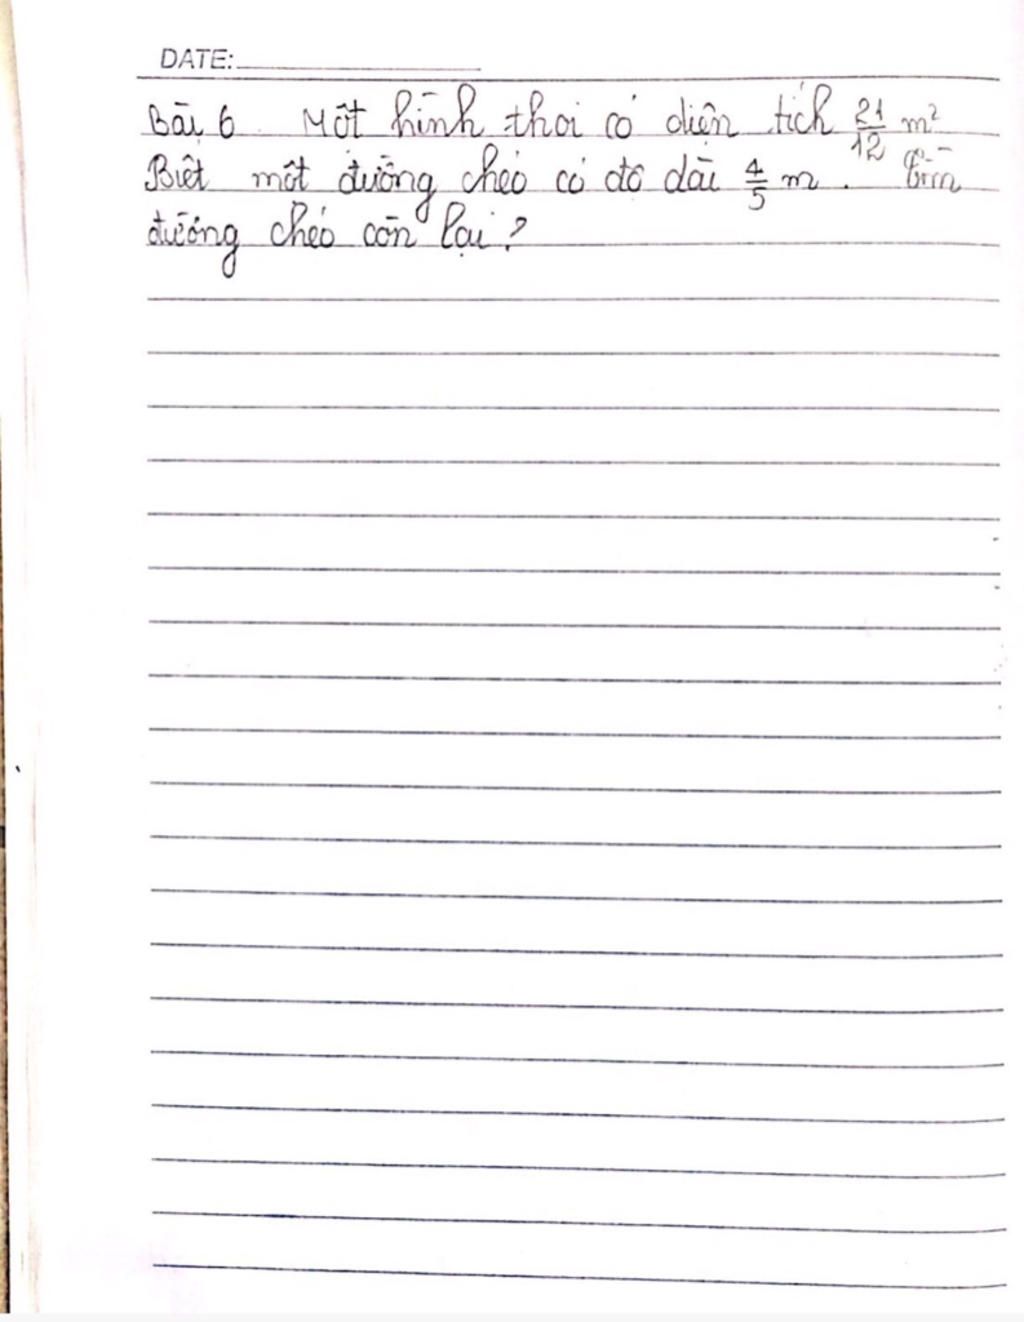 DATE:
Bài 6 Một hình thoi có diện tích 21/12 m²
Biết một đường chéo có độ dài 4/5 m. Tìm
đường chéo còn lại?